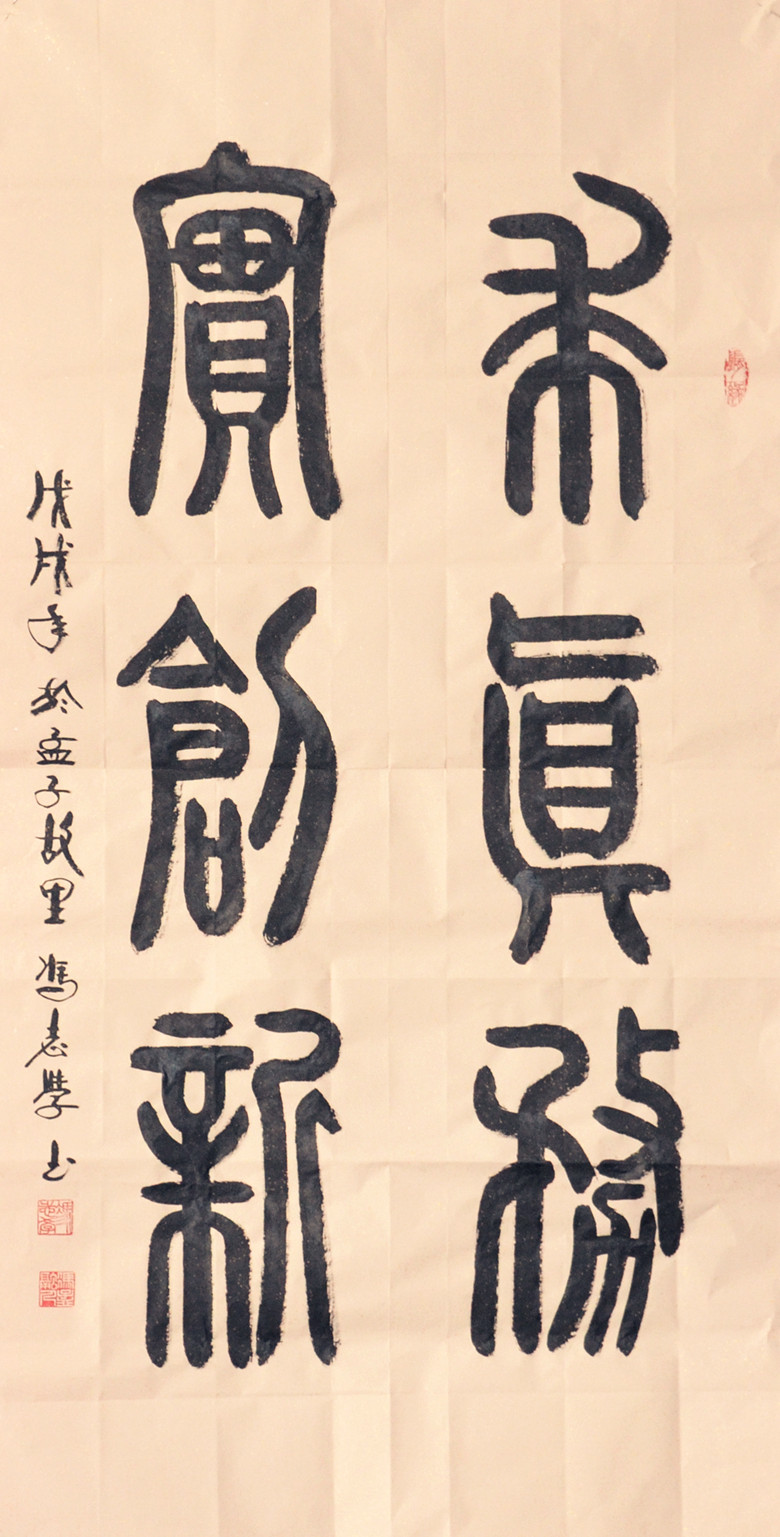 求真務
實創新
戊戌年於孟子故里馮志學书